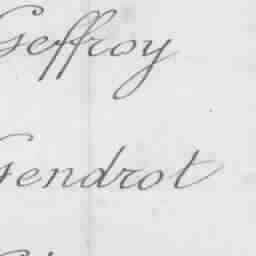 Geffroy
Gendrot